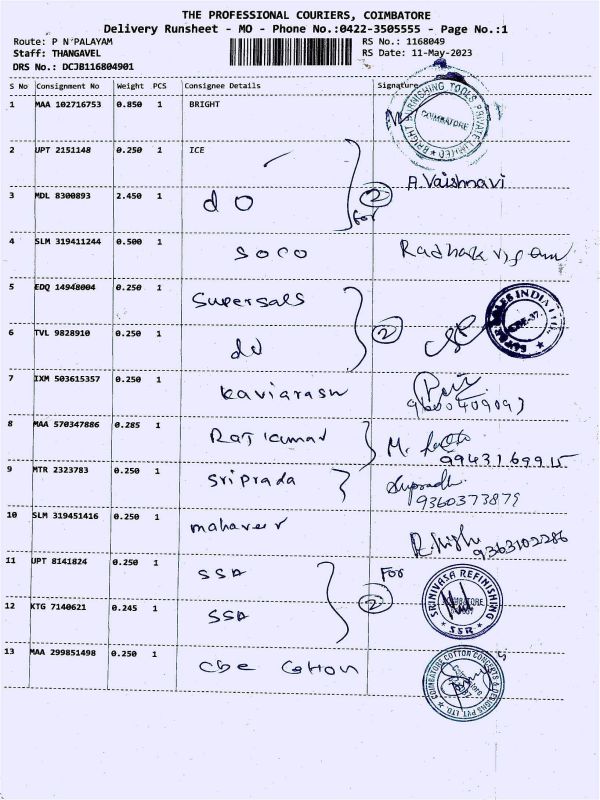 THE PROFESSIONAL COURIERS, COIMBATORE
Delivery Runsheet - MO - Phone No.:0422-3505555 - Page No.:1
Route: P N PALAYAM RS No.: 1168049
Staff: THANGAVEL RS Date: 11-May-2023
DRS No.: DCJB116804901
S No Consignment No Weight PCS Consignee Details Signature
1 MAA 102716753 0.850 1 BRIGHT
BRIGHT BURNISHING TOOLS PRIVATE LIMITED COIMBATORE
2 UPT 2151148 0.250 1 ICE
3 MDL 8300893 2.450 1 do for 2 A. Vaishnavi
4 SLM 319411244 0.500 1 soco
5 EDQ 14948004 0.250 1 Supersals
6 TVL 9828910 0.250 1 do 2
7 IXM 503615357 0.250 1 kaviarasu
8 MAA 570347886 0.285 1 Rajkumar M.
9943169915
9 MTR 2323783 0.250 1 sriprada
9360373879
10 SLM 319451416 0.250 1 mahaveer
9363102286
11 UPT 8141824 0.250 1 SSA For
12 KTG 7140621 0.245 1 SSA 2
SRINIVASA REFINISHING SSR
13 MAA 299851498 0.250 1 Cbe Cotton
COIMBATORE COTTON CONCEPTS & DESIGNS PVT. LTD.